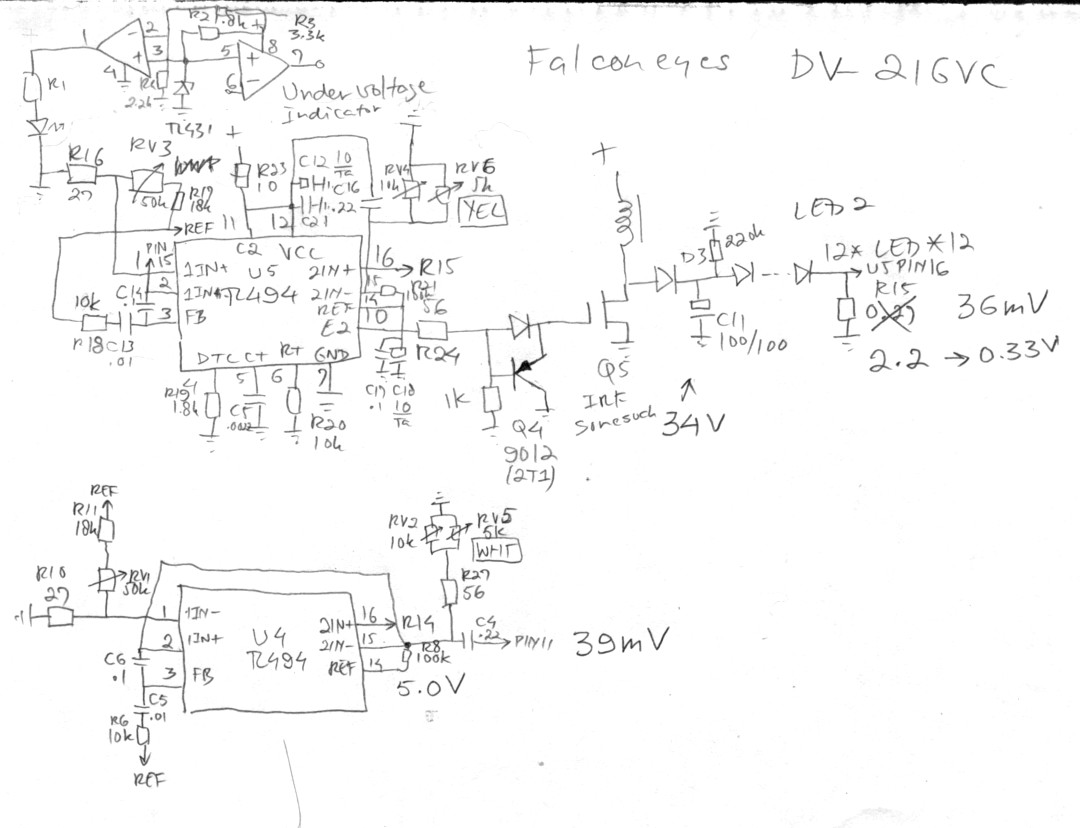 Falconeyes DV-216VC
1
2
3
4
R3
3.3k
5
6
7
8
R1
2.2k
Under voltage
Indicator
TL431
+
R16
27
RV3
50k
R23
10
C12 10
Ta
C16
.22
C21
RV4
10k
RV6
5k
YEL
REF
11
12
C2 VCC
U5
TL494
PIN
15
1
1IN+
2
3
FB
2IN+
16
R15
2IN-
15
REF
14
E2
10
56
R24
10k
R18
C13
.01
C14
DTC CT RT GND
4
5
6
7
R19
1.8k
R20
10k
C17
.1
C18
10
Ta
1k
Q4
9012
(2T1)
+
Q5
IRF
somesuch
34V
D3
220k
C11
100/100
LED2
12* LED *12
U5PIN16
R15
2.2 → 0.33V
36mV
REF
R11
18k
R10
27
RV1
50k
1
1IN-
2
1IN+
3
FB
U4
TL494
2IN+
16
R14
2IN-
15
REF
14
R8
100k
5.0V
RV2
10k
RV5
5k
WHT
R27
56
C4
.22
PIN11
39mV
C6
.1
C5
.01
R6
10k
REF